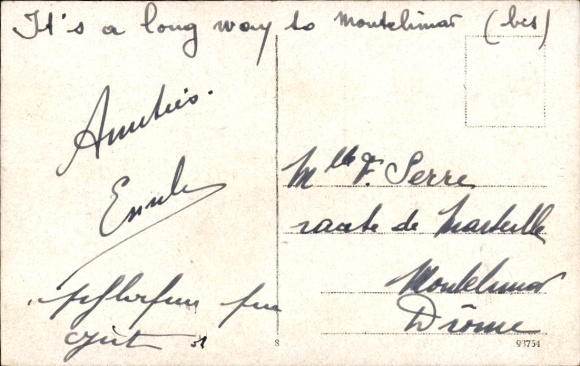 It's a long way to Montelimar (bis)
Amitiés.
Emile
Mlle F. Serre
route de Marseille
Montelimar
Drôme
8
97754